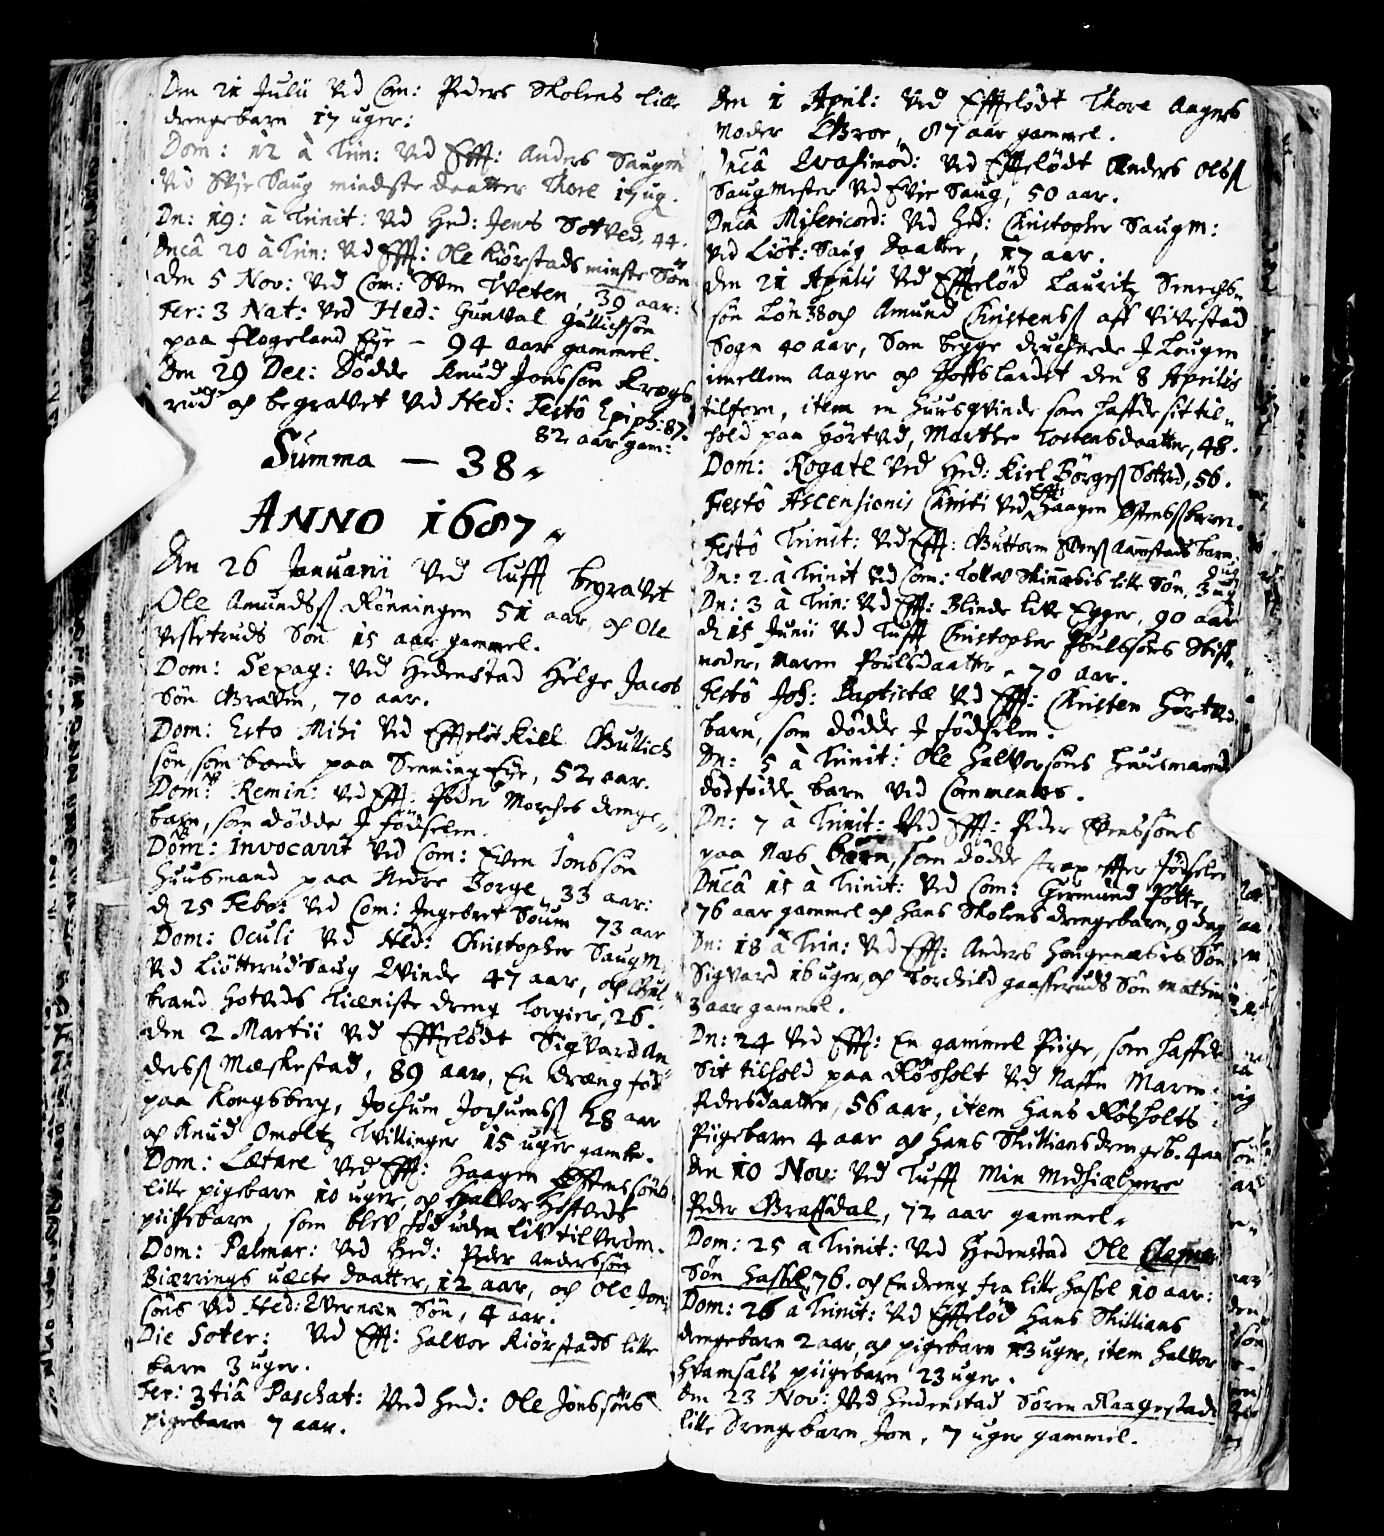 Den 21 Julii Ved Com: Peders Skolens lille
drengebarn 17 uger:
Dom: 12 à Trin: Ved Efft: Anders Saugm
Ved Skje Saug mindste daatter Thore 17 ug.
Dn: 19: à Trinit: Ved Hed: Jens Sotved, 44.
Dncâ 20 à Trin: Ved Efft: Ole Kiörstads minste Sön
den 5 Nov: Ved Com: Sven Tveten, 39 aar:
Fer: 3 Nat: Ved Hed: Gunval Gullichsön
paa Flogeland Eye – 94 aar gammel.
Den 29 Dec: Dödde Knud Jonssön Krogs
rud och begravet Ved Hed: Festô Epiph: 87.
82 aar gam:
Summa — 38
ANNO 1687
Den 26 Januarii Ved Tufft begravet
Ole Amundsß Rönningen 51 aar, och Ole
Vesletruds Sön 15 aar gammel.
Dom: Sepag: Ved Hedenstad Helge Jacob
Sön Graven, 70 aar.
Dom: Esto Mihi Ved Effteløt Kield Gullich
sön som boede paa Senning Eye, 52 aar.
Dom: Remin: Ved Efft: Peder Morches drenge
barn, som dödde J födselen.
Dom: Invocavit Ved Com: Even Jonssön
Huusmand paa Nedre Borge 33 aar:
d 25 Febr: Ved Com: Ingebret Soum 73 aar
Dom: Oculi Ved Hed: Christopher Saugm.
Ved Liötterud Saug Qvinde 47 aar, och Gul
brand Hotveds Tieniste dreng Torgier, 26.
den 2 Martii Ved Effteløt Sigvard An
dersß Mæskestad, 89 aar, En dreng föd
paa Kongsberg, Jochum Jochumsß 28 aar
och Knud Omoltz Tvillinger 15 uger gamle.
Dom: Lætare Ved Efft: Haagen Efftenssöns
lille pigebarn 10 uger, och Halvor Hostveds
piigebarn, som blev föd uden liv til Verden.
Dom: Palmar: Ved Hed: Peder Anderssön
Biærrings uæcte daatter, 12 aar, och Ole Jon
söns Ved Hed: Evernæn Sön, 4 aar.
Die Soter: Ved Efft: Halvor Kiörstads lille
barn 3 uger.
Fer: 3tiâ Paschat: Ved Hed: Ole Jonssöns
pigebarn 7 aar.
Den 1 April: Ved Effteløt Thore Aagers
Moder Groe, 87 aar gammel.
Dncâ Qvasimod: Ved Effteløt Anders Olsß
Saugmester Ved Evje Saug, 50 aar.
Dncâ Misericord: Ved Hed: Christopher Saugm:
Ved Liöt: Saug Daatter, 17 aar.
den 21 Aprilis Ved Effteløt Lauritz
sön Lön 38 och Amund Christensß aff Vivestad
Sogn 40 aar, Som begge druchnede J Lougen
imellem Aager och Hoffslandet den 8 Aprilis
tilforn, item en Huusqvinde som haffde sit til
hold paa Hörtved, Marthe Tostensdaatter, 48.
Dom: Rogate Ved Hed: Kiel Börgesß Sotved, 56.
Festô Ascensionis Christi Ved Efft: Haagen Ostensß barn.
Festô Trinit: Ved Efft: Guttorm Aamstads barn
Dn: 2 à Trinit Ved Com: Tollef Skinnæbis lille Sön, 3 ug
Dn: 3 à Trin: Ved Efft: Blinde Live Egger, 90 aar
d 15 Junii Ved Tufft Christopher Poulssöns Stiff
moder, Maren Poulsdaatter, 70 aar.
Festô Joh: Baptistæ Ved Efft: Christen Hörtved
barn, som dödde J födselen.
Dn: 5 à Trinit: Ole Halvorsöns Huusmands
dödfödde barn Ved Commenæs.
Dn: 7 à Trinit: Ved Efft: Peder Evenssöns
paa Næs barn, som dödde strax efter födselen
Dncâ 15 à Trinit: Ved Com: Germund Potte
76 aar gammel och Hans Skolens drengebarn, 9 dag
Dn: 18 à Trin: Ved Efft: Anders Hougenæbis Sön
Sigvard 16 uger, och Torchild Gaasseruds Sön
3 aar gammel.
Dn: 24 Ved Efft: En gammel Piige, som haffde
Sit tilhold paa Rösholt Ved Naffn Maren
Pedersdaatter, 56 aar, item Hans Rösholts
Piigebarn 4 aar och Hans Skillians drengeb. 4 aar
den 10 Nov: Ved Tufft Min Medhiælpere
Peder Graffdal, 72 aar gammel
Dom: 25 à Trinit: Ved Hedenstad Ole
Sön Hassel, 76. och En dreng fra lille Hassel 10 aar:
Dom: 26 à Trinit: Ved Effteløt Hans Skillians
drengebarn 2 aar, och pigebarn 13 uger, item Halvor
Hvamsals piigebarn 23 uger.
den 23 Nov: Ved Hedenstad Sören Raagestads
lille Drengebarn Jon, 7 uger gammel.